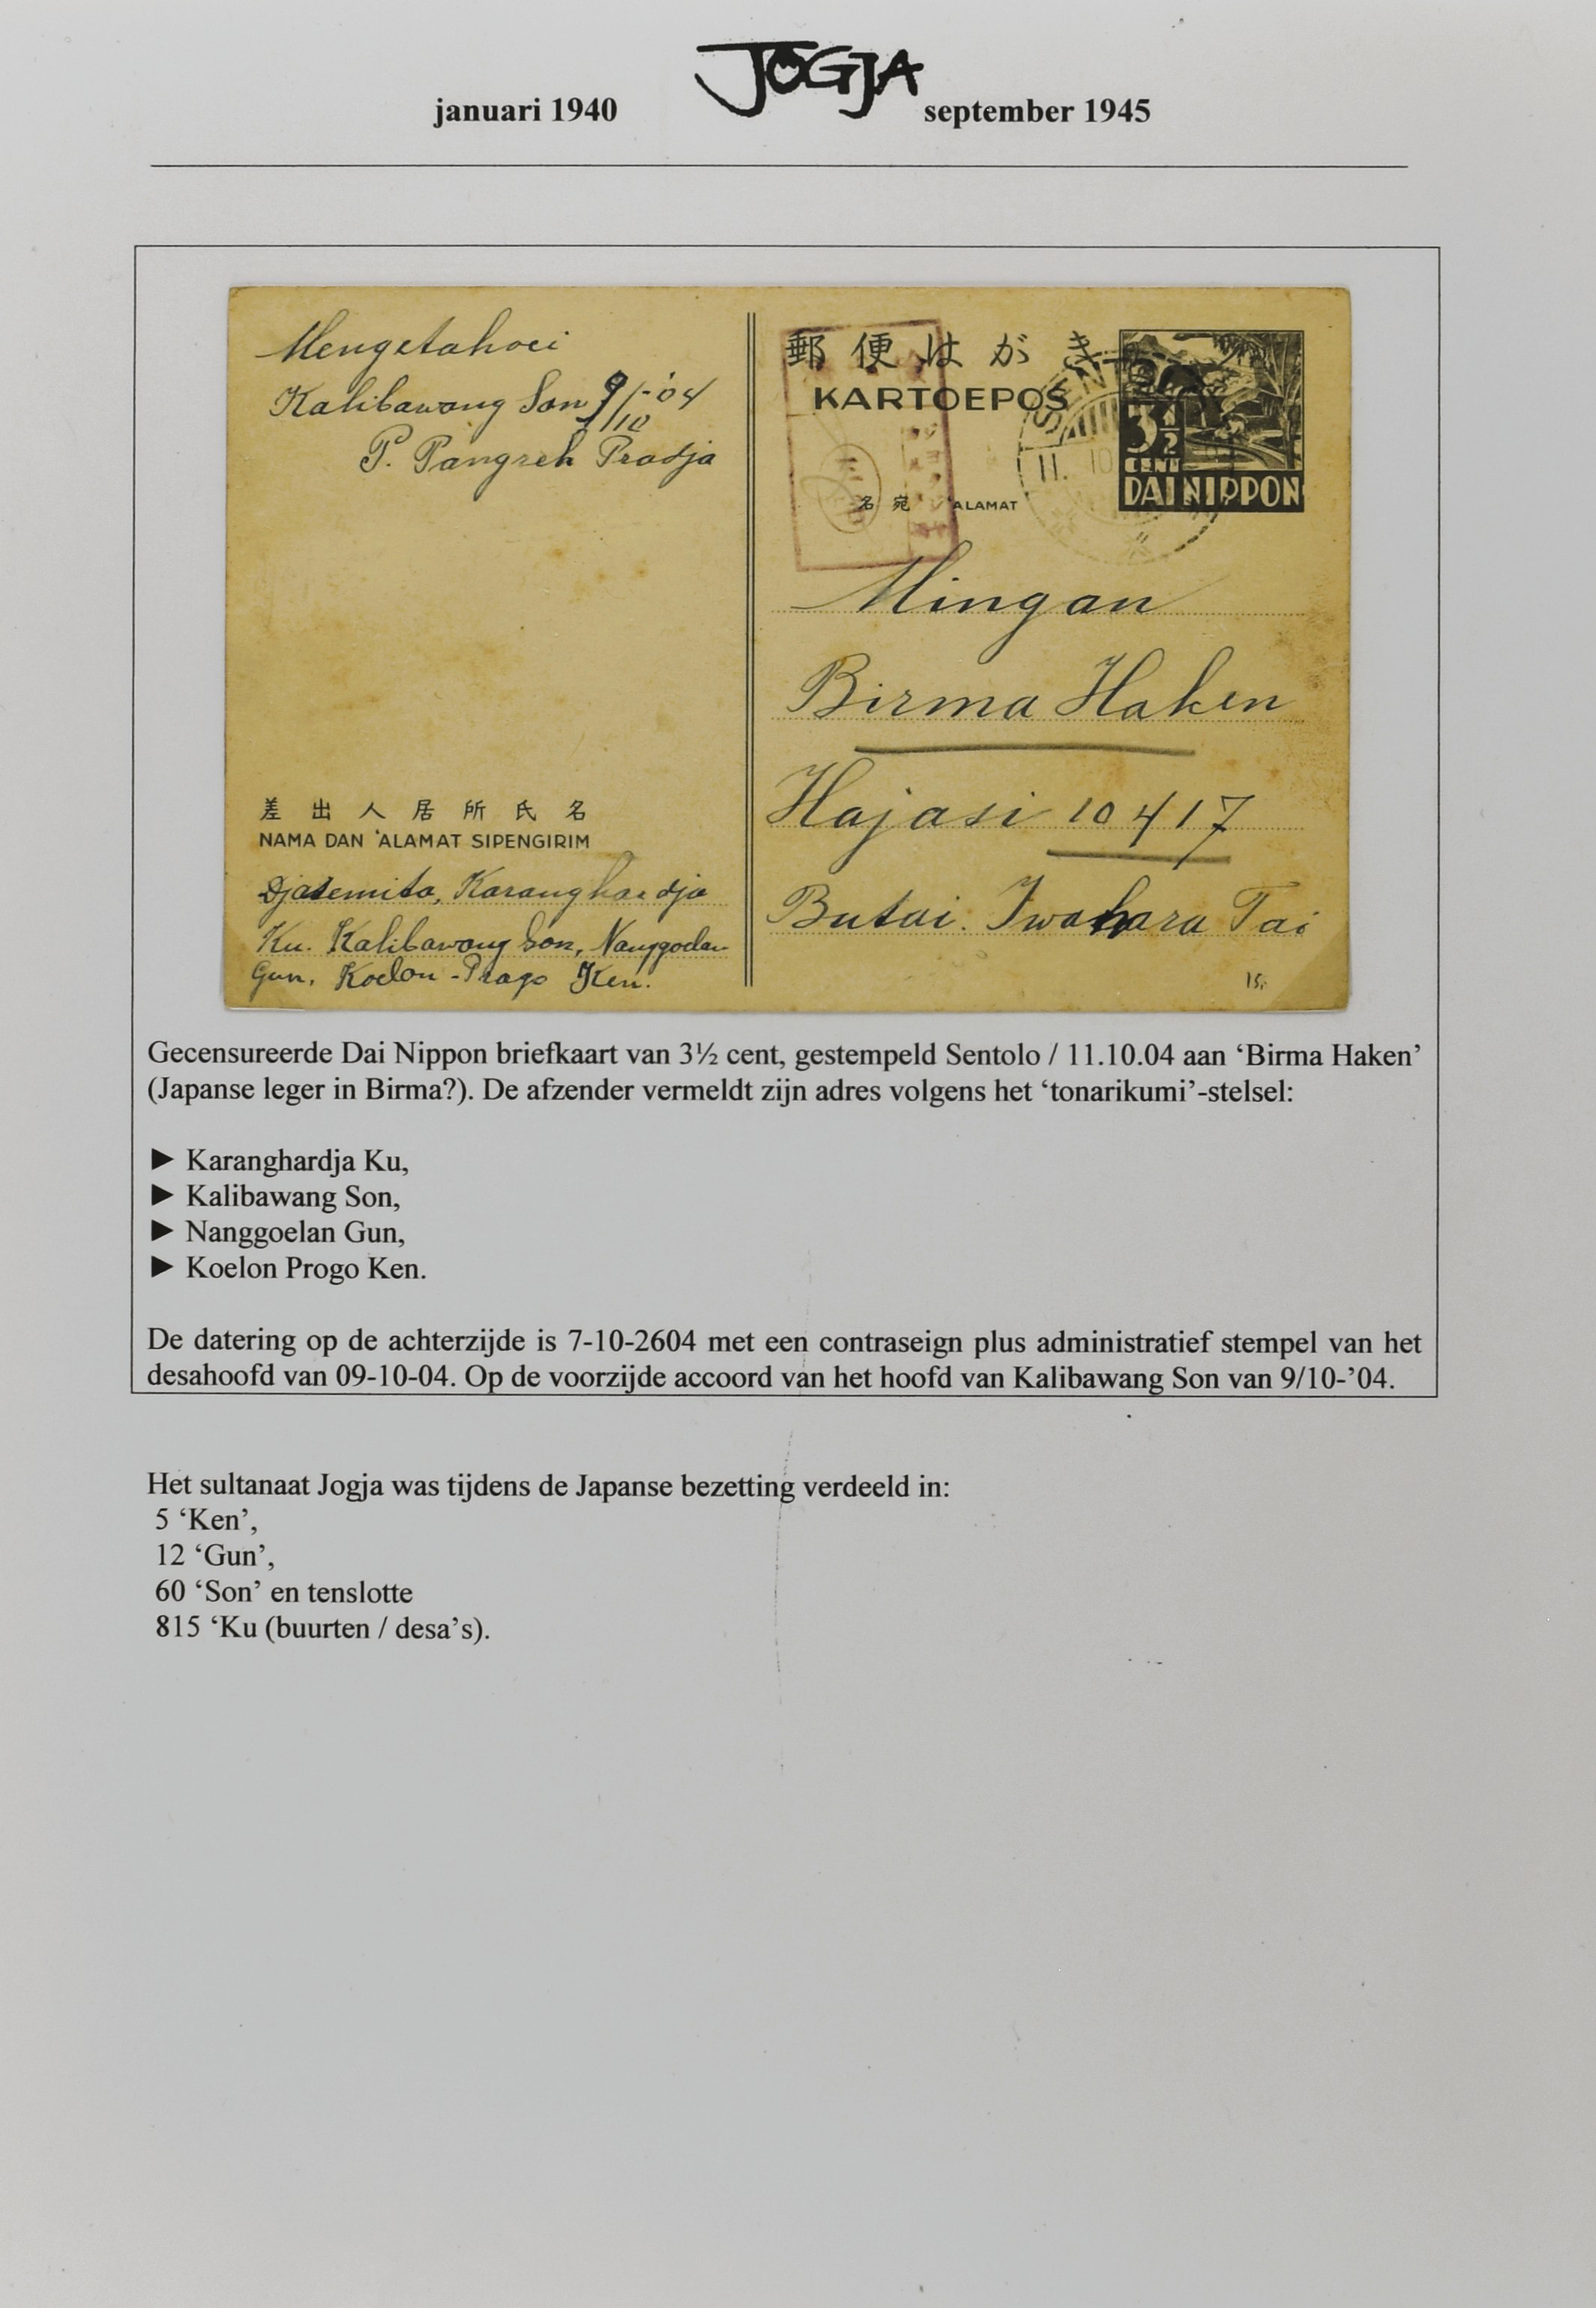 januari 1940
JOGJA
september 1945
Mengetahoei
Kalibawang Son 9/10-'04
P. Pangreh Pradja
郵便はがき
KARTOEPOS
SENTOLO
11. 10
3½
CENT
DAI NIPPON
名宛 'ALAMAT
Mingan
Birma Haken
Hajasi 10417
Butai. Iwahara Tai
15,
差出人居所氏名
NAMA DAN 'ALAMAT SIPENGIRIM
Djasemita, Karanghardja
Ku. Kalibawang Son, Nanggoelan
Gun, Koelon-Prago Ken.
Gecensureerde Dai Nippon briefkaart van 3½ cent, gestempeld Sentolo / 11.10.04 aan ‘Birma Haken’
(Japanse leger in Birma?). De afzender vermeldt zijn adres volgens het ‘tonarikumi’-stelsel:
► Karanghardja Ku,
► Kalibawang Son,
► Nanggoelan Gun,
► Koelon Progo Ken.
De datering op de achterzijde is 7-10-2604 met een contraseign plus administratief stempel van het
desahoofd van 09-10-04. Op de voorzijde accoord van het hoofd van Kalibawang Son van 9/10-’04.
Het sultanaat Jogja was tijdens de Japanse bezetting verdeeld in:
5 ‘Ken’,
12 ‘Gun’,
60 ‘Son’ en tenslotte
815 ‘Ku (buurten / desa’s).